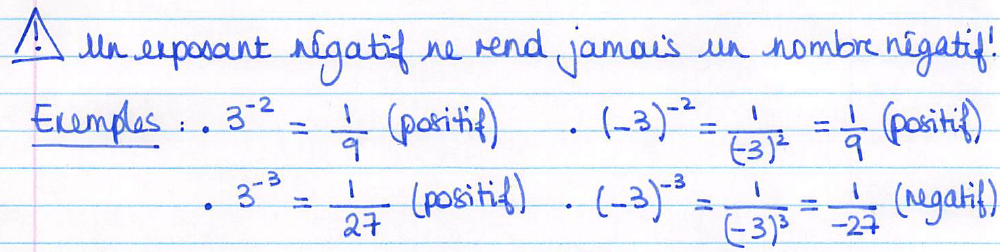 ⚠ Un exposant négatif ne rend jamais un nombre négatif!
Exemples : • 3⁻² = 1/9 (positif) • (-3)⁻² = 1/(-3)² = 1/9 (positif)
• 3⁻³ = 1/27 (positif) • (-3)⁻³ = 1/(-3)³ = 1/-27 (negatif)